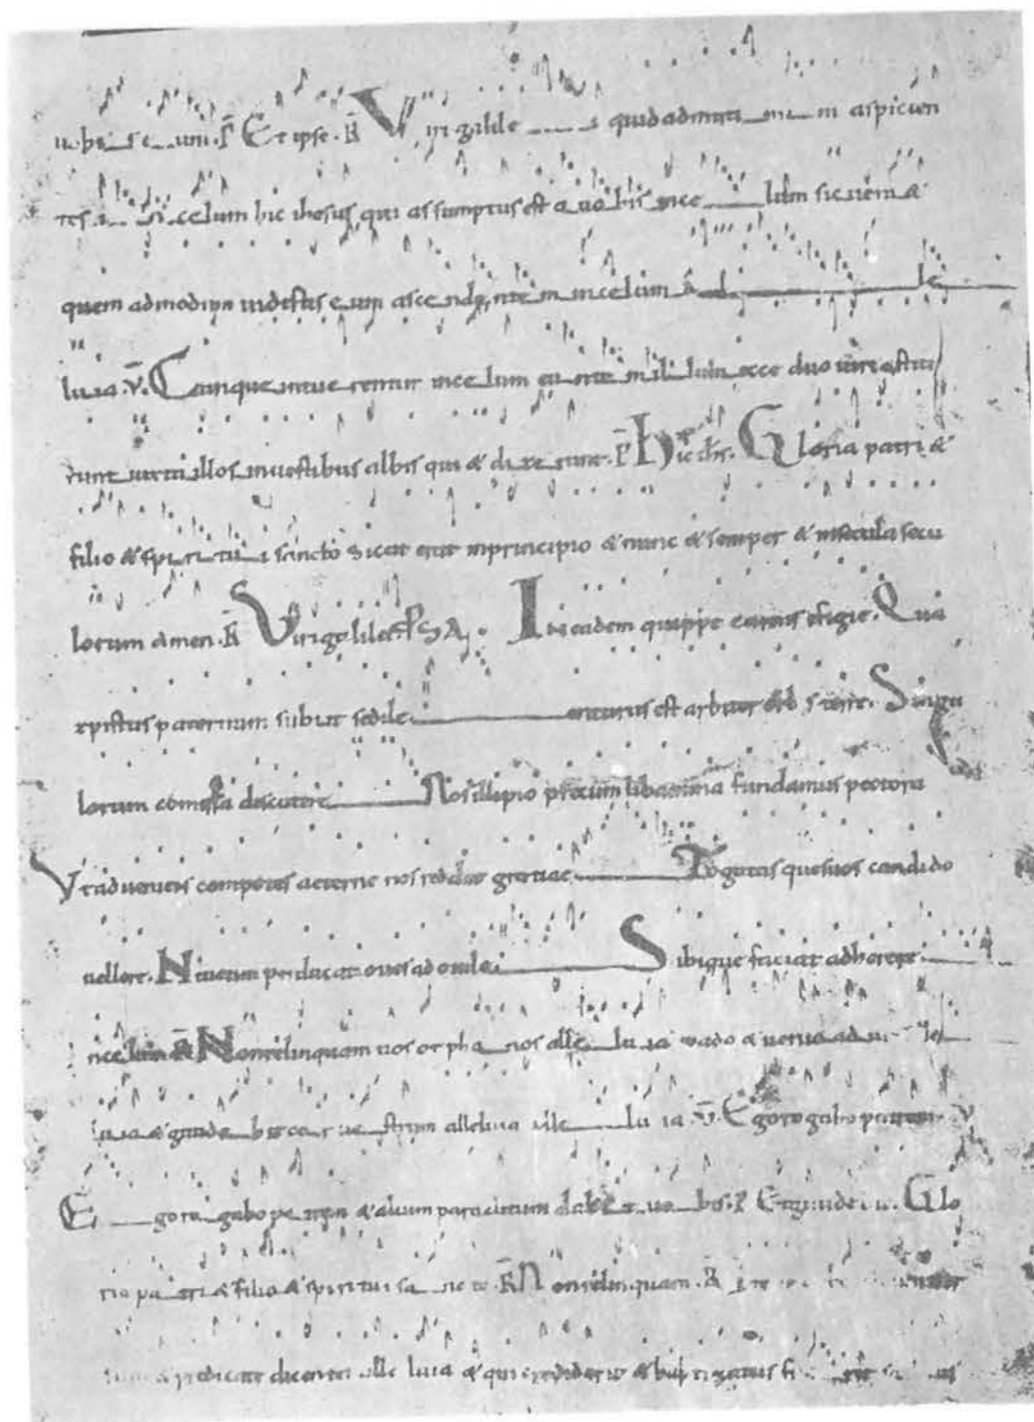 Et ipse. R Viri galile quid admira mini aspicien
tes in celum hic ihesus qui assumptus est a uobis in celum sic ueni &
quem admodum uidistis eum ascendentem in celum a l le
luia V. Cumque intue rentur in celum eun tem illum ecce duo uiri astite
runt iuxta illos in uestibus albis qui & di xe runt. P Hic ihs. Gloria patri &
filio & spiritui sancto Sicut erat in principio & nunc & semper & in secula secu
lorum amen. R Viri galilei. PSA. In eadem quippe carnis efigie. Qua
xpistus paternum subiit sedile uenturus est arbiter orbis terre. Singu
lorum comissa discutere Nos illi pio precum libamina fundamus pectora
Vt aduentus compotes aeterne nos reddat gratiae Togatos que suos candido
uellere. Niueum perducat oues ad ouile Sibique faciat adherere
in celum R Non relinquam uos orphanos alle lu ia uado & uenio ad uos al le
luia & gaude bit cor uestrum alleluia alle lu ia V. Ego rogabo patrem. V
Ego rogabo patrem & alium paraclitum dabit uobis. P Et gaude Glo
ria patri & filio & spiritui sancto R Non relinquam. A
predicate dicentes alle luia & qui crediderit & baptizatus